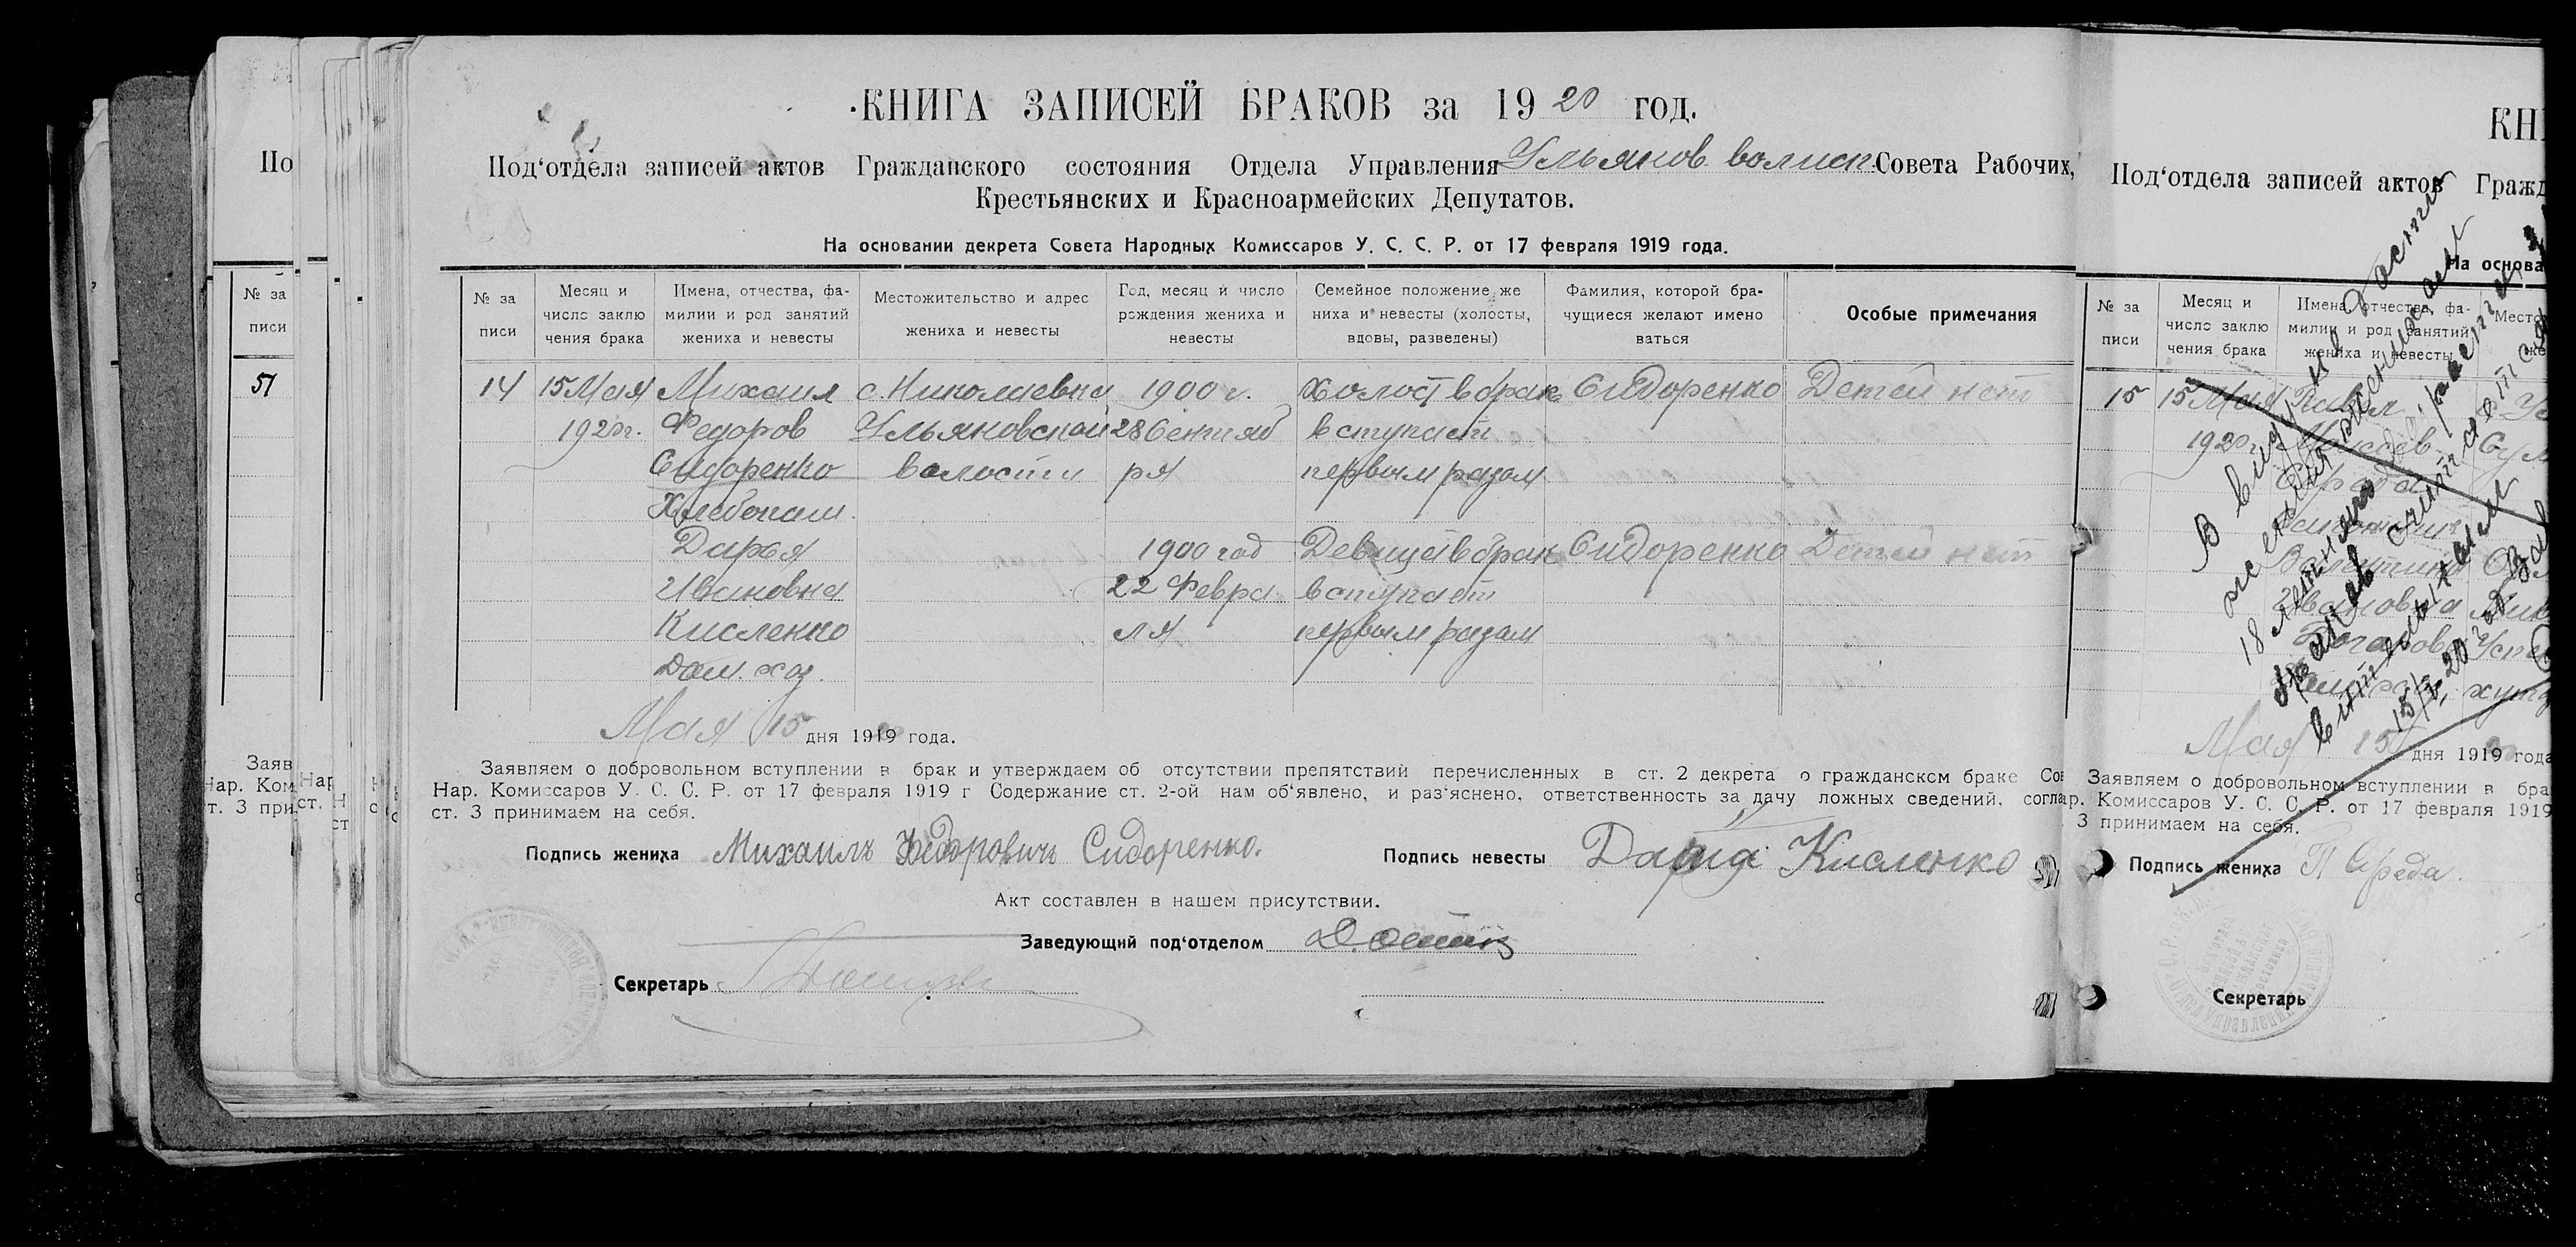 КНИГА ЗАПИСЕЙ БРАКОВ за 1920 год.
Под‘отдела записей актов Гражданского состояния Отдела Управления Ульянов волисп. Совета Рабочих,
Крестьянских и Красноармейских Депутатов.
На основании декрета Совета Народных Комиссаров У. С. С. Р. от 17 февраля 1919 года.
№ за писи
Месяц и число заклю чения брака
Имена, отчества, фа- милии и род занятий жениха и невесты
Местожительство и адрес жениха и невесты
Год, месяц и число рождения жениха и невесты
Семейное положение же ниха и невесты (холосты, вдовы, разведены)
Фамилия, которой бра- чущиеся желают имено ваться
Особые примечания
14 15 Мая Михаил с. Николаевка 1900 г. Холост в брак Сидоренко Детей нет
1920г. Федоров Ульяновской 28 Сентяб вступает
Сидоренко волости ря первым разом
Хлебопаш.
Дарья 1900 год Девица в брак Сидоренко Детей нет
Ивановна 22 Февра вступает
Кисленко ля первым разом
Дом. хоз.
Мая 15 дня 1919 года.
Заявляем о добровольном вступлении в брак и утверждаем об отсутствии препятствий перечисленных в ст. 2 декрета о гражданском браке Сов
Нар. Комиссаров У. С. С. Р. от 17 февраля 1919 г Содержание ст. 2-ой нам об‘явлено, и раз‘яснено, ответственность за дачу ложных сведений, согла
ст. 3 принимаем на себя.
Подпись жениха Михаилъ Федоровичъ Сидоренко.
Подпись невесты Дария Кисленко
Акт составлен в нашем присутствии.
Заведующий под‘отделом
Секретарь
По
№ за
писи
51
Заяв
Нар. Ком
т. 3 при
КН
Под‘отдела записей актов Гражд
На основа
№ за писи
Месяц и число заклю чения брака
Имена, отчества, фа- милии и род занятий жениха и невесты
Место
15 15 Мая Павел
1920 г
Середа
Валентина
Ивановна
хуто
Мая 15 дня 1919 года
В виду не
18
брак
15/V 20 г.
Заявляем о добровольном вступлении в бра
р. Комиссаров У. С. С. Р. от 17 февраля 1919
3 принимаем на себя.
Подпись жениха П Середа.
Секретарь